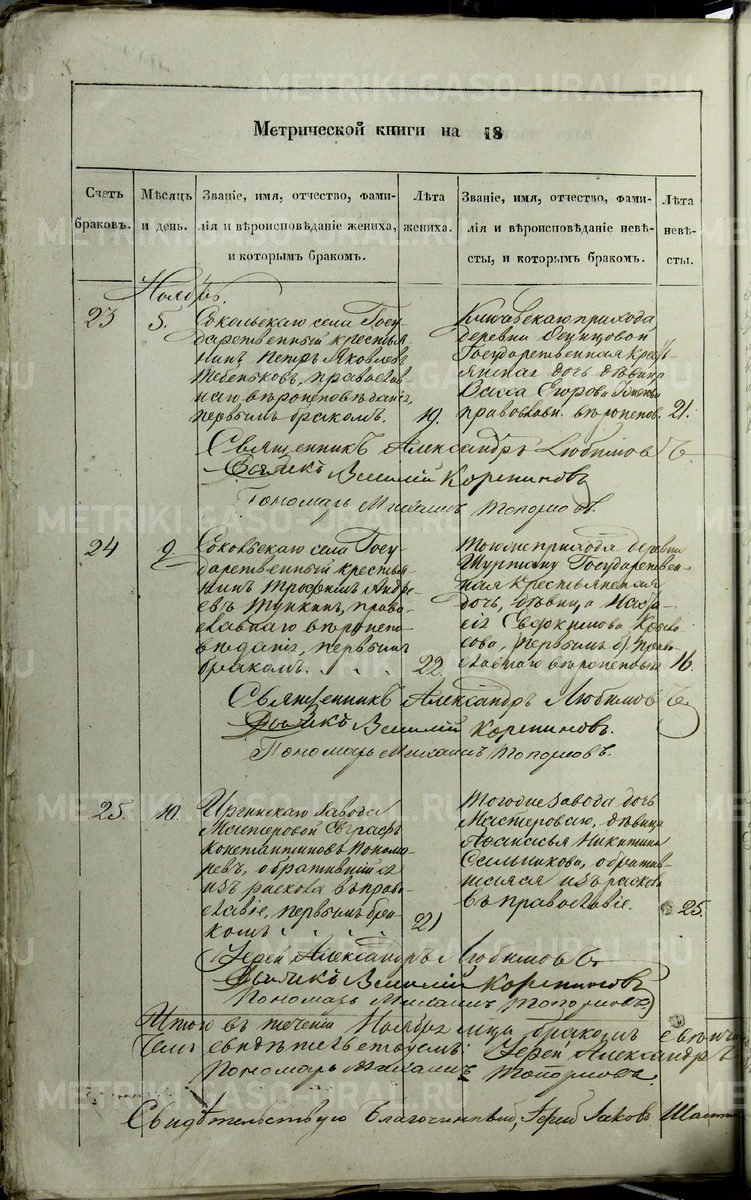 METRIKI.GASO-URAL.RU
Метрической книги на 18
Счетъ браковъ.
Мѣсяцъ и день.
Званіе, имя, отчество, фами-
лія и вѣроисповѣданіе жениха,
и которымъ бракомъ.
Лѣта жениха.
Званіе, имя, отчество, фами-
лія и вѣроисповѣданіе невѣ-
сты, и которымъ бракомъ.
Лѣта невѣ-
сты.
Ноябрь.
23
5.
Сокольскаго села Госу-
дарственный крестья-
нинъ Петръ Яковлевъ
Тебеньковъ, православ-
наго вѣроисповѣданія,
первымъ бракомъ.
19.
Ключевскаго прихода
деревни
Государственная крес-
янская дочь дѣвица
Васса Егорова
православн. вѣроисповѣ.
21.
Священникъ Александръ Любимовъ
Дьячекъ Василій Корепиновъ
Пономарь Михаилъ Топорковъ.
24
9.
села Госу-
дарственный крестья-
нинъ Трофимъ Андре-
евъ право-
славнаго вѣроиспо-
вѣданія, первымъ
бракомъ. . . .
22.
Тогоже прихода деревни
Шуртану Государствен-
ная крестьянская
дочь, дѣвица Наста-
сія Евфкимова
первымъ б. Право-
славнаго
16.
Священникъ Александръ Любимовъ
Дьячекъ Василій Корепиновъ.
Пономарь Михаилъ Топорковъ.
25.
10.
Иргинскаго Завода
Мастеровой Евграфъ
Константиновъ Поном-
ревъ, обратившійся
изъ раскола въ право-
славіе, первымъ бра-
комъ. . . .
21
Тогоже Завода дочь
Мастероваго, дѣвица
Афанасья Никитина
обратив-
шаяся изъ раскола
въ православіе.
25.
Іерей Александръ Любимовъ
Дьячекъ Василій Корепиновъ
Пономарь Михаилъ Топорковъ
Итого въ теченіи Ноября мца бракомъ
свидѣтельствуемъ: Іерей Александръ
Пономарь Михаилъ Топорковъ.
Свидѣтельствую Благочинный, Іерей Іаковъ